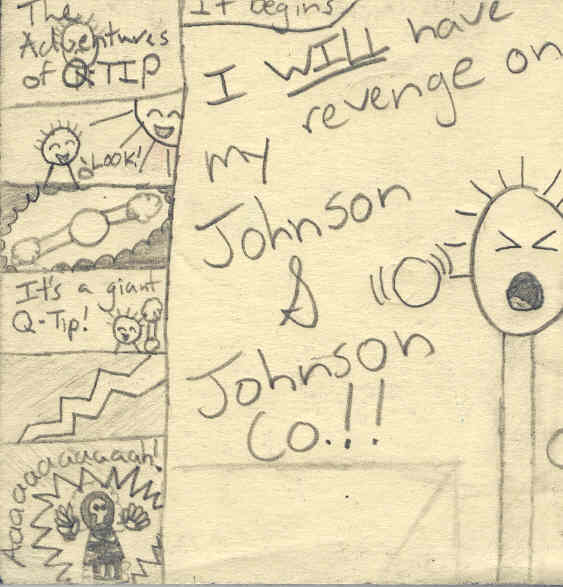 The
Adventures
of Q-TIP
LOOK!
It's a giant
Q-Tip!
Aaaaaaaaaaaah!
It begins
I WILL have
revenge on
my
Johnson
&
Johnson
Co.!!